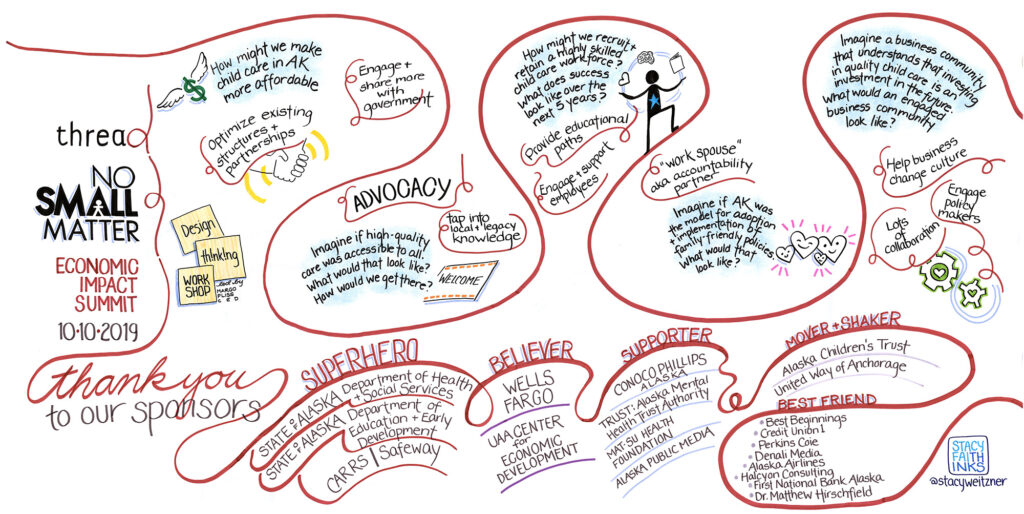 thread
NO
SMALL
MATTER
ECONOMIC
IMPACT
SUMMIT
10·10·2019
Design
thinking
WORK
SHOP
led by
MARGO
FLISS
CED
How might we make
child care in AK
more affordable
Engage +
share more
with
government
Optimize existing
structures +
partnerships
ADVOCACY
tap into
local + legacy
knowledge
Imagine if high-quality
care was accessible to all.
What would that look like?
How would we get there?
WELCOME
How might we recruit +
retain a highly skilled
child care workforce?
What does success
look like over the
next 5 years?
Provide educational
paths
Engage + support
employees
"work spouse"
aka accountability
partner
Imagine if AK was
the model for adoption
+ implementation of
family-friendly policies.
What would that
look like?
Imagine a business community
that understands that investing
in quality child care is an
investment in the future.
What would an engaged
business community
look like?
Help business
change culture
Engage
policy
makers
Lots
of
collaboration
thank you
to our sponsors
SUPERHERO
STATE OF ALASKA Department of Health
+ Social Services
STATE OF ALASKA Department of
Education + Early
Development
CARRS | Safeway
BELIEVER
WELLS
FARGO
UAA CENTER
for
ECONOMIC
DEVELOPMENT
SUPPORTER
CONOCO PHILLIPS
ALASKA
TRUST: Alaska Mental
Health Trust Authority
MAT-SU HEALTH
FOUNDATION
ALASKA PUBLIC MEDIA
MOVER + SHAKER
Alaska Children's Trust
United Way of Anchorage
BEST FRIEND
• Best Beginnings
• Credit Union 1
• Perkins Coie
• Denali Media
• Alaska Airlines
• Halcyon Consulting
• First National Bank Alaska
• Dr. Matthew Hirschfield
STACY
FAITH
INKS
@stacyweitzner